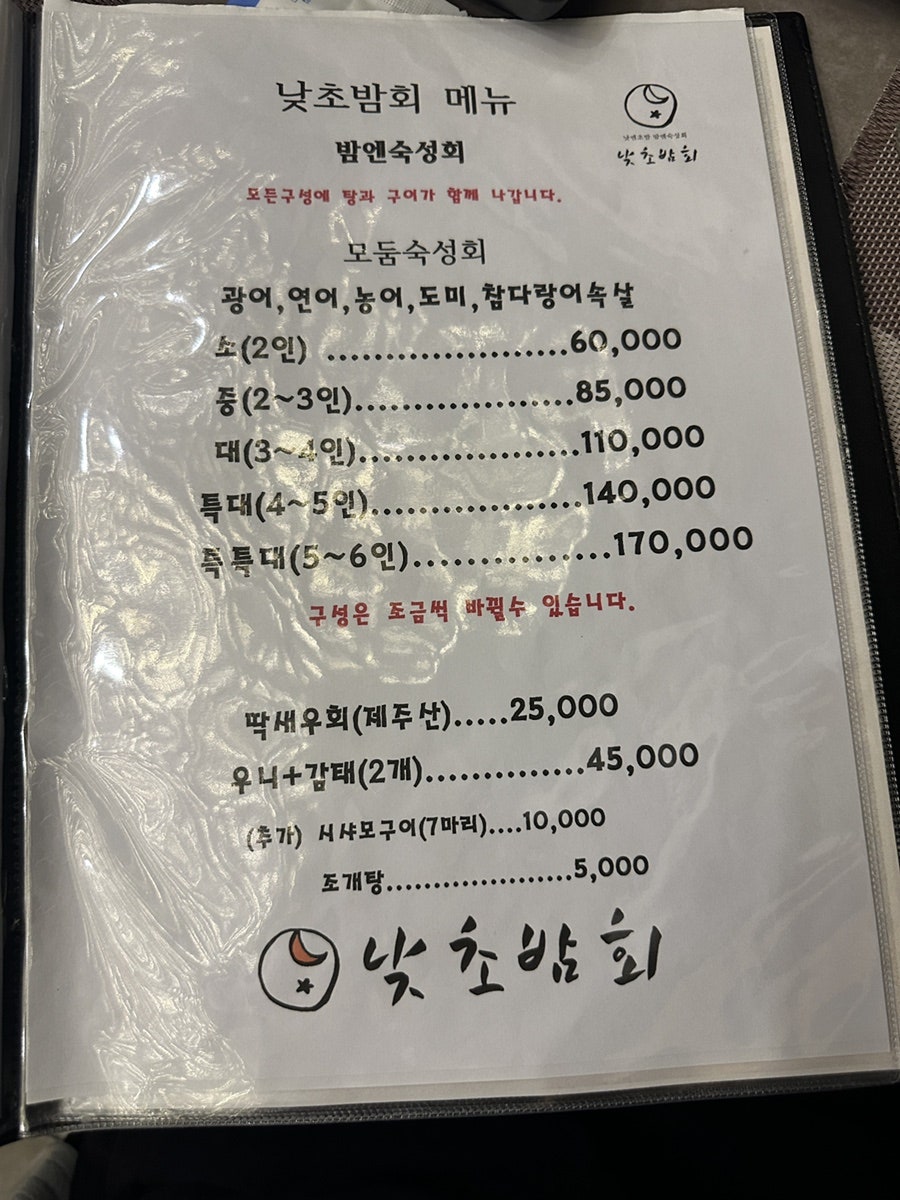 낮초밤회 메뉴
낮엔초밥 밤엔숙성회
낮초밤회
밤엔숙성회
모든구성에 탕과 구이가 함께 나갑니다.
모둠숙성회
광어,연어,농어,도미,참다랑어속살
소(2인) .....................60,000
중(2~3인)...................85,000
대(3~4인)...................110,000
특대(4~5인)..................140,000
특특대(5~6인)...............170,000
구성은 조금씩 바뀔수 있습니다.
딱새우회(제주산).....25,000
우니+감태(2개)..............45,000
(추가) 시샤모구이(7마리)....10,000
조개탕.....................5,000
낮초밤회